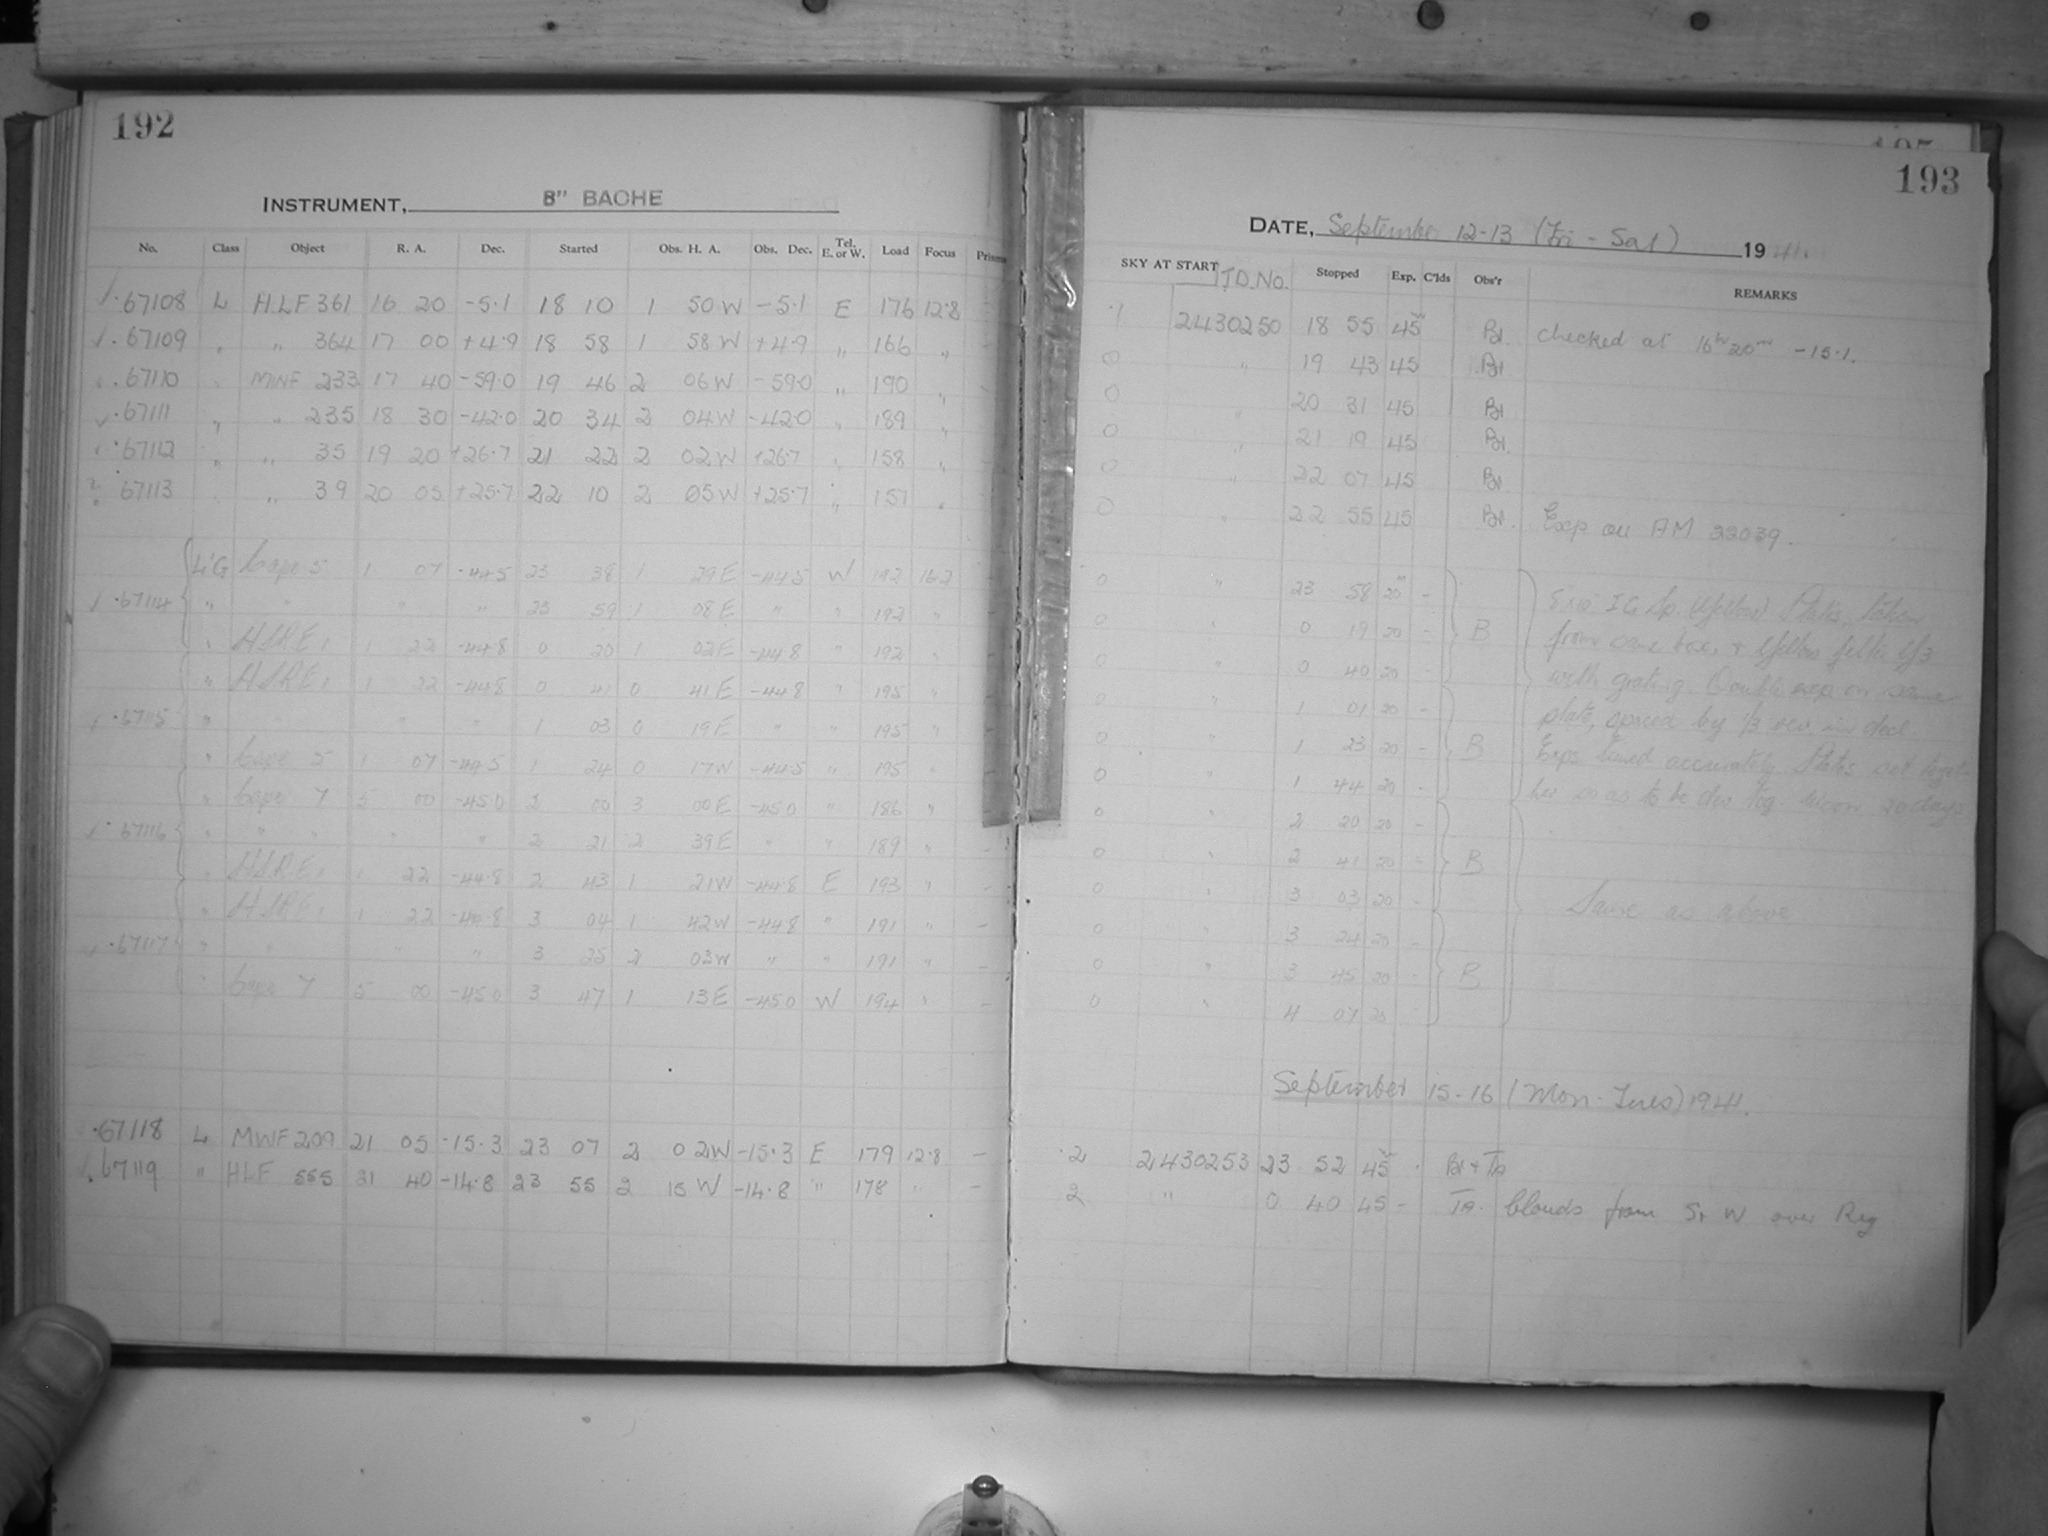 192
INSTRUMENT, 8" BACHE
No. Class Object R. A. Dec. Started Obs. H. A. Obs. Dec. Tel. E. or W. Load Focus Prisms
67108 L HLF 361 16 20 -5.1 18 10 1 50 W -5.1 E 176 12.8
67109 " " 364 17 00 +4.9 18 58 1 58 W +4.9 " 166 "
67110 MWF 233 17 40 -59.0 19 46 2 06 W -59.0 " 190 "
67111 " " 235 18 30 -42.0 20 34 2 04 W -42.0 " 189 "
67112 " " 35 19 20 +26.7 21 22 2 02 W +26.7 " 158 "
67113 " 39 20 05 +25.7 22 10 2 05 W +25.7 " 157 "
L'G Cape 5 1 07 -44.5 23 38 1 29 E -44.5 W 192 16.2
67114 " " " " 23 59 1 08 E " " 192 "
" HSRE 1 1 22 -44.8 0 20 1 02 E -44.8 " 192 "
" HSRE 1 1 22 -44.8 0 41 0 41 E -44.8 " 195 "
67115 " " " " 1 03 0 19 E " " 195 "
" Cape 5 1 07 -44.5 1 24 0 17 W -44.5 " 195 "
" Cape 7 5 00 -45.0 2 00 3 00 E -45.0 " 186 "
67116 " " " " " 2 21 2 39 E " " 189 " -
" HSRE 1 1 22 -44.8 2 43 1 21 W -44.8 E 193 " -
" HSRE 1 1 22 -44.8 3 04 1 42 W -44.8 " 191 " -
67117 " " " " 3 25 2 03 W " " 191 " -
" Cape 7 5 00 -45.0 3 47 1 13 E -45.0 W 194 " -
67118 L MWF 209 21 05 -15.3 23 07 2 02 W -15.3 E 179 12.8 -
67119 " HLF 555 21 40 -14.8 23 55 2 15 W -14.8 " 178 " -
193
DATE, September 12-13 (Fri - Sat) 1941.
SKY AT START J.D. No. Stopped Exp. C'lds Obs'r REMARKS
1 2430250 18 55 45m Bl checked at 16h 20m -15.1.
0 " 19 43 45 Bl
0 " 20 31 45 Bl
0 " 21 19 45 Bl
0 " 22 07 45 Bl
0 " 22 55 45 Bl. Exp on AM 22039.
0 " 23 58 20m - Exp IG Sp. (Yellow) Plates, taken
0 " 0 19 20 - B from same box, & Yellow filter
0 " 0 40 20 - with grating. Double exp on same
0 " 1 01 20 - plate, spaced by 1/3 rev. in decl.
0 " 1 23 20 - B Exps timed accurately. Plates
0 " 1 44 20 - so as to be dev tog. 20 days
0 " 2 20 20 -
0 " 2 41 20 - B
0 " 3 03 20 - Same as above
0 " 3 24 20 -
0 " 3 45 20 - B
0 " 4 07 20
September 15-16 (Mon-Tues) 1941.
2 2430253 23 52 45m Bl + Ta
2 " 0 40 45 - Ta. Clouds from S + W over Reg